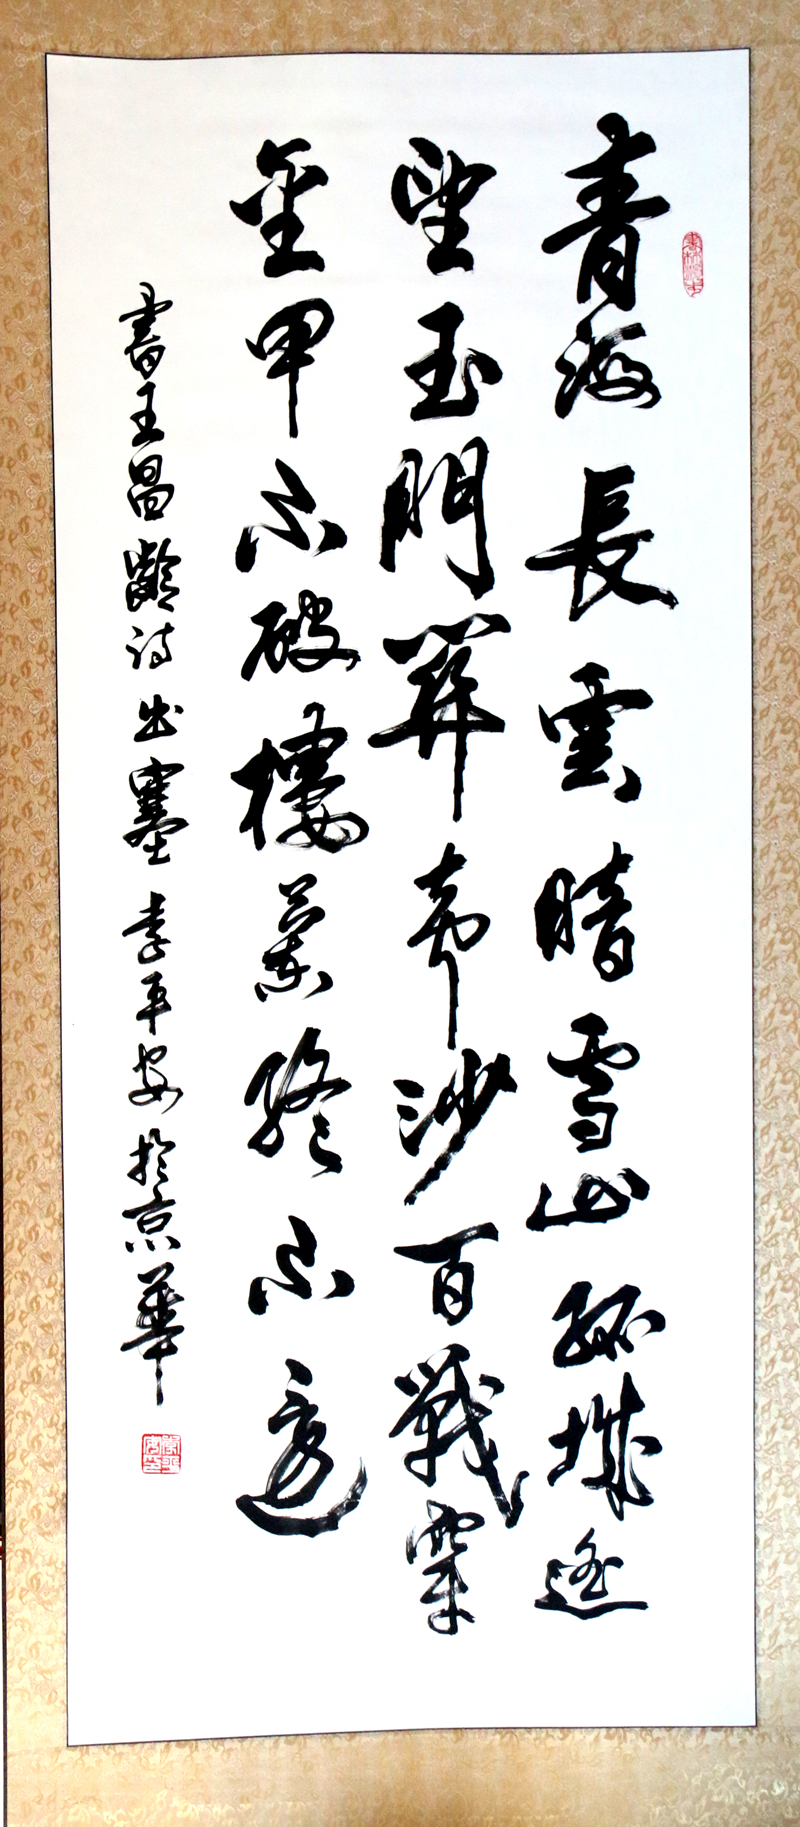 青海長雲暗雪山孤城遥
望玉門關黄沙百戰穿
金甲不破樓蘭終不還
書王昌齡詩出塞 李平安於京華